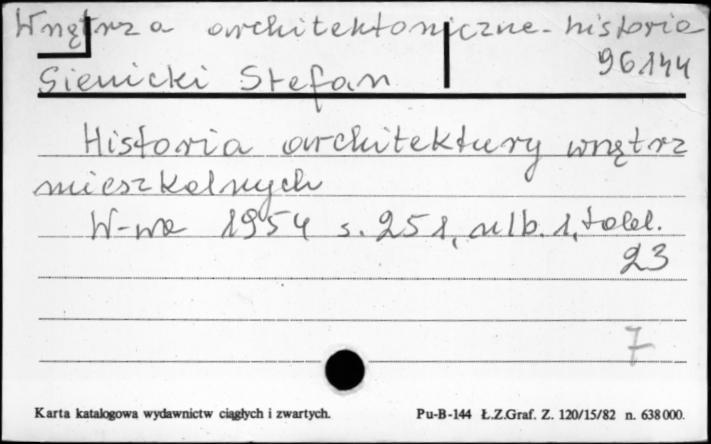 Wnętrza architektoniczne - historia
96144
Sienicki Stefan
Historia architektury wnętrz
mieszkalnych
W-wa 1954 s. 251, nlb. 1, tabl.
23
7
Karta katalogowa wydawnictw ciągłych i zwartych. Pu-B-144 Ł.Z.Graf. Z. 120/15/82 n. 638000.